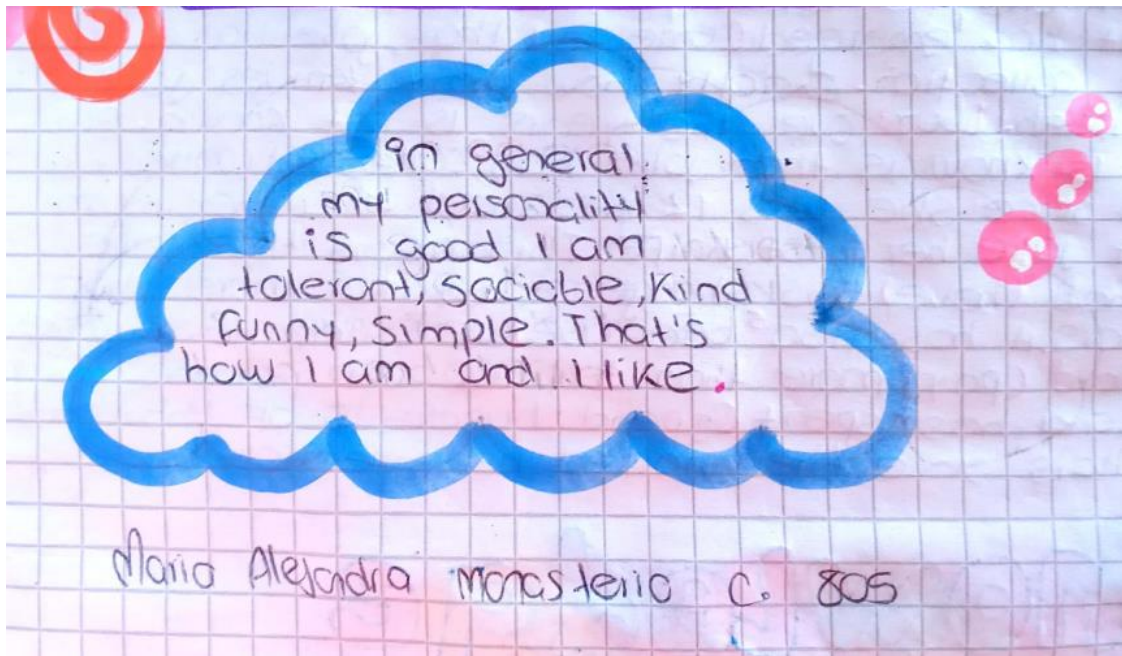 in general
my personality
is good I am
tolerant, sociable, kind
funny, simple. That's
how I am and I like.
Maria Alejandra monasterio C. 805